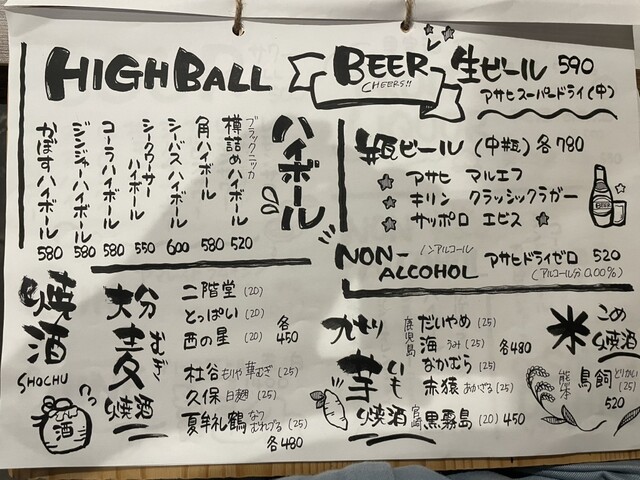 HIGHBALL
ハイボール
ブラックニッカ
樽詰めハイボール 520
角ハイボール 580
シーバスハイボール 600
シークワーサーハイボール 550
コーラハイボール 580
ジンジャーハイボール 580
かぼすハイボール 580
BEER
CHEERS!!
生ビール 590
アサヒスーパードライ(中)
瓶ビール (中瓶) 各780
アサヒ マルエフ
キリン クラッシックラガー
サッポロ エビス
BEER
NON-ALCOHOL
ノンアルコール
アサヒドライゼロ 520
(アルコール分0.00%)
焼酒
SHOCHU
酒
大分麦むぎ焼酒
二階堂 (20)
とっぱい (20)
西の星 (20)
各450
杜谷 もりや 華むぎ (25)
久保 白麹 (25)
夏牟礼鶴 なつむれづる (25)
各480
九州芋いも焼酒
鹿児島
だいやめ (25)
海 うみ (25)
なかむら (25)
赤猿 あかざる (25)
各480
宮崎 黒霧島 (20) 450
米こめ焼酒
熊本 鳥飼 とりかい (25)
520